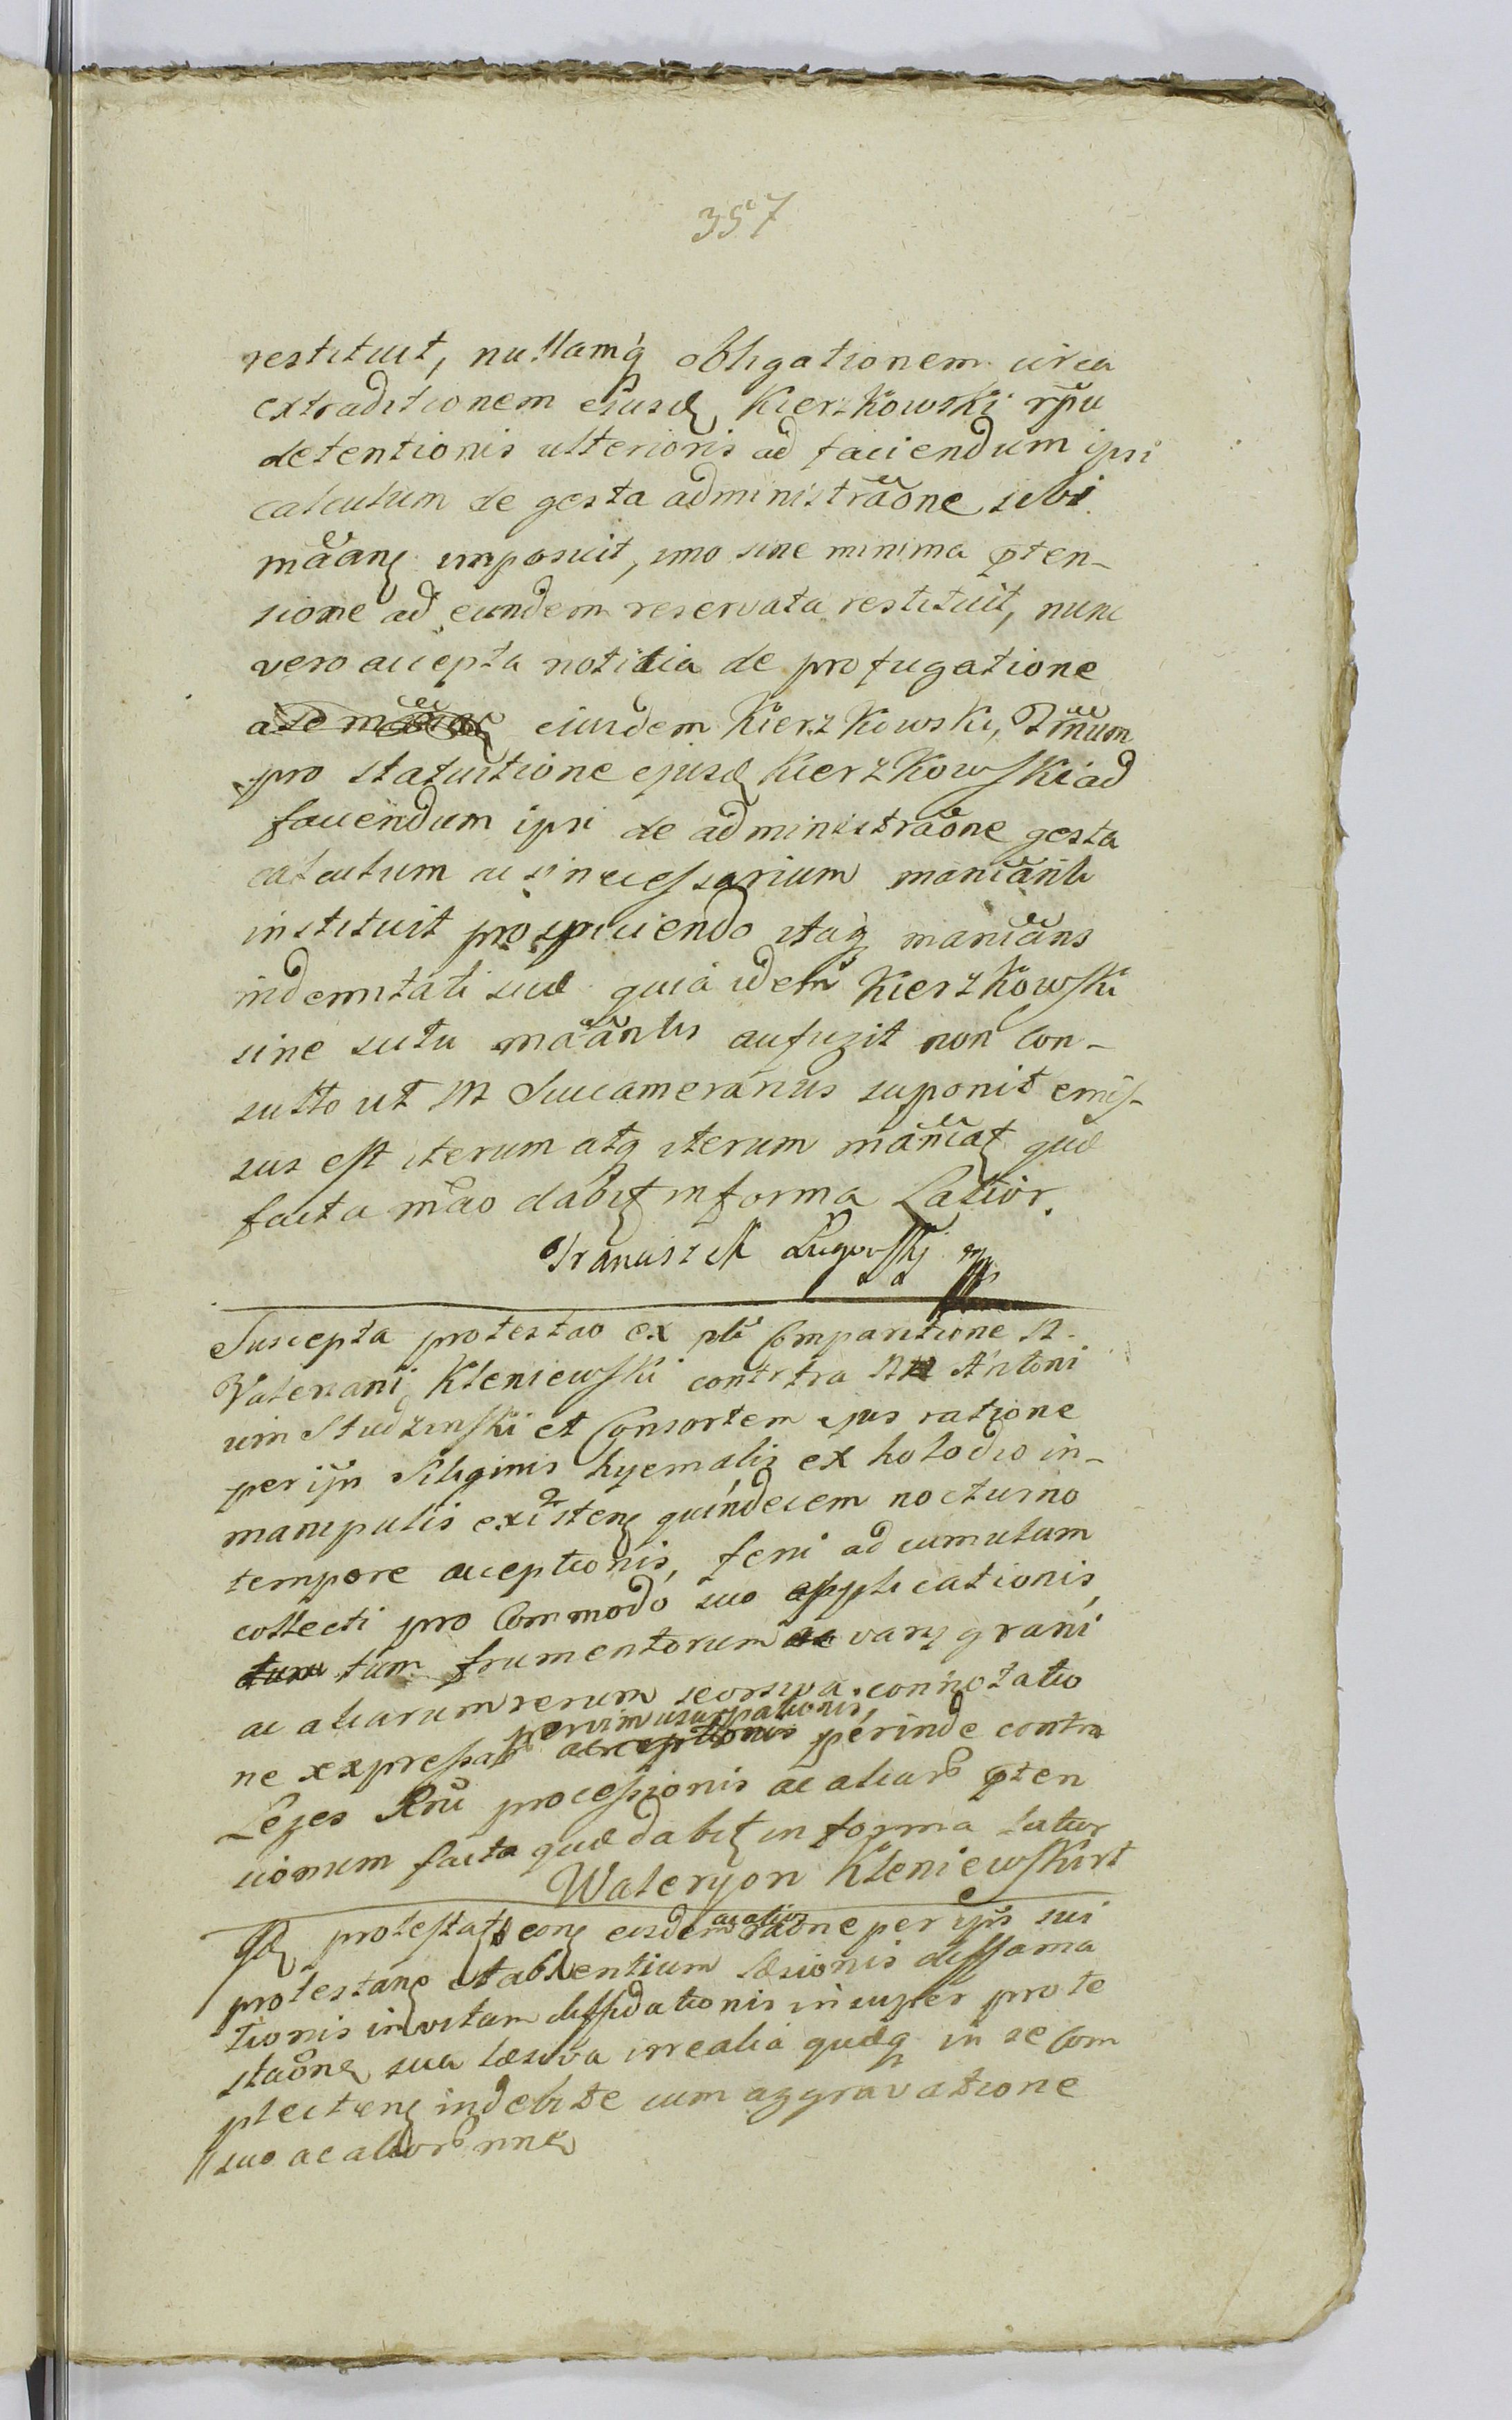 357
restituit, nullamq̃ obligationem circa
extraditionem ejusd Kierzkowski rp̃u
detentionis ulterioris ad faciendum ipsi
calculum de gesta administrãone sibi
mãan imposuit, imo sine minima pten-
sione ad eundem reservata restituit, nunc
vero accepta notitia de profugatione
ejusdem Kierzkowski, Trm̃num
pro statuitione ejusd Kierzkowski ad
faciendum ipsi de administrãone gesta
calculum ac sinecessarium maniãnti
instituit prospiciendo itaq̃ maniãns
indemnitati suæ quia idem Kierzkowski
sine scitu mãantis aufugit non con-
sulto ut M Succamerarius suponit emis-
sus est iterum atq iterum mãniat quæ
facta mão dabit in forma Latior.
Franciszek Ługowskj mp
Suscepta protestao ex pti Comparitione N.
Valeriani Kleniewski contrtra N Antoni
um Studzinski et Consortem ejus ratione
per ijsn Siliginis hyemalis ex holodio in-
manipulis existen quindecem nocturno
tempore acceptionis, feni ad cumulum
collecti pro Commodo suo applicationis,
tum tam frumentorum varij grani
ac aliarum rerum seorsiva connotatio
pervim usurpationis,
ne exxpressar acceptionis perinde contra
Leges Rñi processionis ac aliar pten
sionum facta quæ dabit in forma latior
Waleryon Kleniewski rt
ac alios
Qd protestat con eisdem rãone per ijsn sui
protestan et absentium læsionis diffama
tionis in vitam diffidationis insuper prote
stãone sua læsiva irrealia quæq in se Com
plecten indebite cum aggravatione
suo ac alior nne